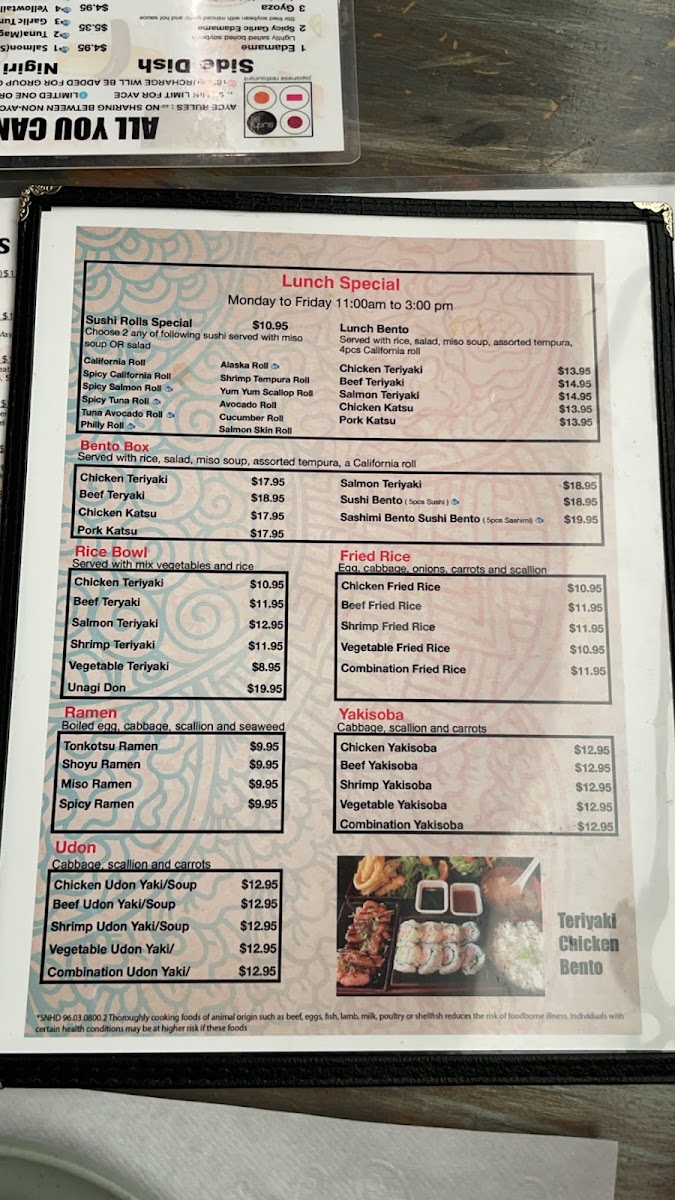 ALL YOU CAN
AYCE RULES : NO SHARING BETWEEN NON-AYC
LIMIT FOR AYCE
LIMITED ONE OR
SURCHARGE WILL BE ADDED FOR GROUP O
japanese restaurant
Side Dish
Nigiri
1 Edamame $4.95
Lightly salted boiled soybean
2 Spicy Garlic Edamame $5.35
Stir fried soybean with minced garlic and hot sauce
3 Gyoza $4.95
1 Salmon(S
2 Tuna(Mag
3 Garlic Tun
4 Yellowtail
Lunch Special
Monday to Friday 11:00am to 3:00 pm
Sushi Rolls Special $10.95
Choose 2 any of following sushi served with miso
soup OR salad
California Roll
Spicy California Roll
Spicy Salmon Roll
Spicy Tuna Roll
Tuna Avocado Roll
Philly Roll
Alaska Roll
Shrimp Tempura Roll
Yum Yum Scallop Roll
Avocado Roll
Cucumber Roll
Salmon Skin Roll
Lunch Bento
Served with rice, salad, miso soup, assorted tempura,
4pcs California roll
Chicken Teriyaki $13.95
Beef Teriyaki $14.95
Salmon Teriyaki $14.95
Chicken Katsu $13.95
Pork Katsu $13.95
Bento Box
Served with rice, salad, miso soup, assorted tempura, a California roll
Chicken Teriyaki $17.95
Beef Teryaki $18.95
Chicken Katsu $17.95
Pork Katsu $17.95
Salmon Teriyaki $18.95
Sushi Bento ( 5pcs Sushi ) $18.95
Sashimi Bento Sushi Bento ( 5pcs Sashimi) $19.95
Rice Bowl
Served with mix vegetables and rice
Chicken Teriyaki $10.95
Beef Teryaki $11.95
Salmon Teriyaki $12.95
Shrimp Teriyaki $11.95
Vegetable Teriyaki $8.95
Unagi Don $19.95
Fried Rice
Egg, cabbage, onions, carrots and scallion
Chicken Fried Rice $10.95
Beef Fried Rice $11.95
Shrimp Fried Rice $11.95
Vegetable Fried Rice $10.95
Combination Fried Rice $11.95
Ramen
Boiled egg, cabbage, scallion and seaweed
Tonkotsu Ramen $9.95
Shoyu Ramen $9.95
Miso Ramen $9.95
Spicy Ramen $9.95
Yakisoba
Cabbage, scallion and carrots
Chicken Yakisoba $12.95
Beef Yakisoba $12.95
Shrimp Yakisoba $12.95
Vegetable Yakisoba $12.95
Combination Yakisoba $12.95
Udon
Cabbage, scallion and carrots
Chicken Udon Yaki/Soup $12.95
Beef Udon Yaki/Soup $12.95
Shrimp Udon Yaki/Soup $12.95
Vegetable Udon Yaki/ $12.95
Combination Udon Yaki/ $12.95
Teriyaki
Chicken
Bento
*SNHD 96.03.0800.2 Thoroughly cooking foods of animal origin such as beef, eggs, fish, lamb, milk, poultry or shellfish reduces the risk of foodborne illness. Individuals with
certain health conditions may be at higher risk if these foods